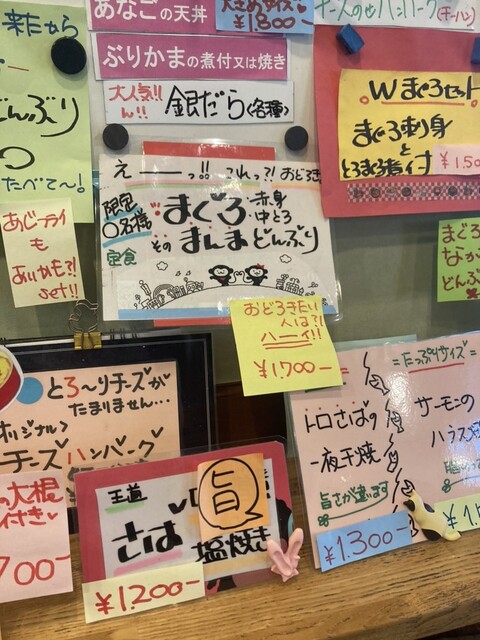 あなごの天丼
大きめサイズ
¥1,800ー
ぶりかまの煮付又は焼き
大人気!!
ん!!
銀だら(各種)
たべて〜!
Wまぐろセット
まぐろ刺身
と
とろまぐろ煮付
えーーっ!! これっ?!
限定
〇名様
定食
まぐろ
赤身
中とろ
その
まんまどんぶり
あじフライ
も
あいかも?!
set!!
おどろきたい
人は?!
ハーイ!!
¥1,700ー
まぐろ
なか
どんぶ
とろ〜りチーズが
たまりません…
オリジナル
チーズハンバーグ
700ー
王道
さば
旨
塩焼き
¥1,200ー
=たっぷりサイズ=
トロさばの
一夜干焼
旨さが違います
¥1,300ー
サーモンの
ハラス